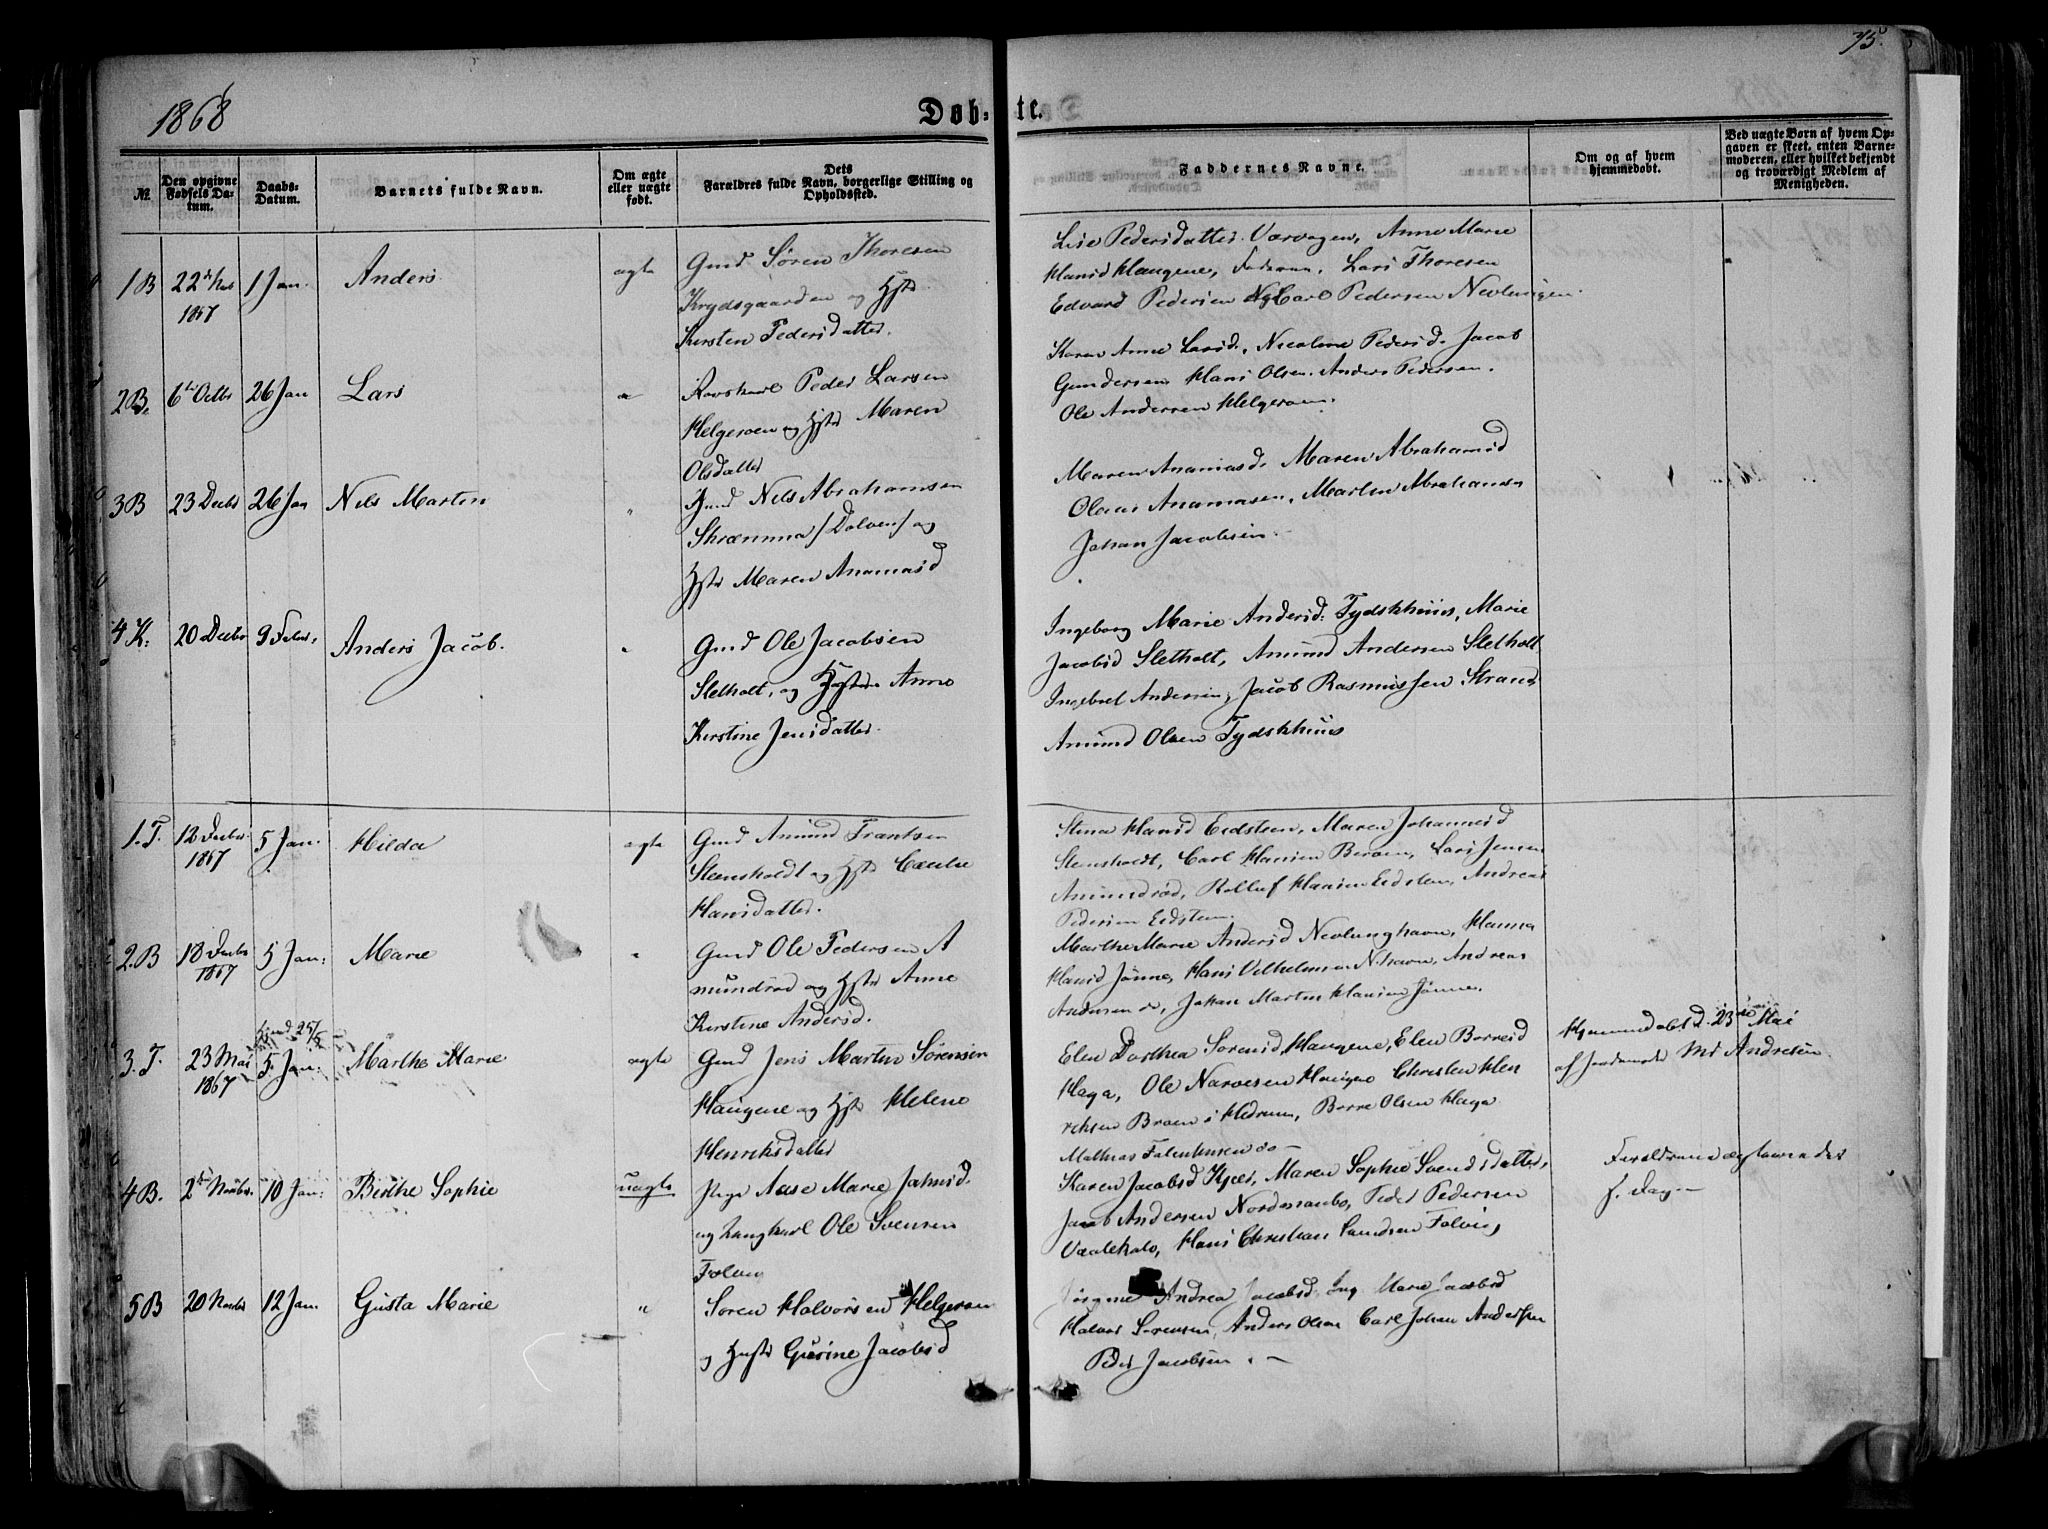 1868
Døb-
te.
75.
№
Den opgivne
Fødsels Da-
tum.
Daabs-
Datum.
Barnets fulde Navn.
Om ægte
eller uægte
født.
Dets
Forældres fulde Navn, borgerlige Stilling og
Opholdssted.
Faddernes Navne.
Om og af hvem
hjemmedøbt.
Ved uægte Børn af hvem Op-
gaven er skeet, enten Barne-
moderen, eller hvilket bekjendt
og troværdigt Medlem af
Menigheden.
1 B
22de
1867
1 Jan.
Anders
ægte
Gmd Søren Thoresen
Krydsgaarden og Hst
Kirsten Pedersdatter.
Lise Pedersdatter Varvagen, Anne Marie
Hansd Haugene, Faderen, Lars Thoresen
Edvard Pedersen Carl Pedersen Nevlungen.
2 B.
6te Octbr
26 Jan
Lars
"
Peder Larsen
Helgeroen og Hst Maren
Olsdatter
Karen Anne Larsd., Nicoline Pedersd. Jacob
Gundersen Hans Olsen. Anders Pedersen.
Ole Andersen Helgeroen.
3 B
23 Decbr
26 Jan
Nils Martin
"
Gmd Nils Abrahamsen
Skræmma /Dolven/ og
Hst Maren Ananiasd
Maren Ananiasd. Maren Abrahamsd
Olaus Ananiasen, Martin Abrahamsen
Johan Jacobsen.
4 K.
20 Decbr
9 Febr.
Anders Jacob.
"
Gmd Ole Jacobsen
Sletholt, og Hst Anne
Kirstine Jensdatter.
Ingeborg Marie Andersd. Tydskhuus, Marie
Jacobsd Sletholt, Amund Andersen Sletholt
Ingebret Andersen, Jacob Rasmussen Strand,
Amund Olsen Tydskhuus
1. T.
12 Decbr
1867
5 Jan.
Hilda
ægte
Gmd Amund Frantsen
Steensholdt og Hst Cecilie
Hansdatter.
Stina Hansd Eidsteen, Maren Johannesd
Stensholdt, Carl Hansen Beroen, Lars Jensen
Amundrød, Rolluf Hansen Eidsten, Andreas
Pedersen Eidsten.
2. B
18 Decbr
1867
5 Jan:
Marie
"
Gmd Ole Pedersen A
mundrød og Hst Anne
Kirstine Andersd.
Marthe Marie Andersd Nevlunghavn, Hanna
Hansd Jønne, Hans Vilhelmsen N.havn, Andreas
Andersen do, Johan Martin Hansen Jønne.
3. T.
23 Mai
1867
25/5
5 Jan.
Marthe Marie
ægte
Gmd Jens Martin Sørensen
Haugene og Hst Helene
Henriksdatter
Elen Dorthea Sørensd, Haugene, Elen Borresd
Haga, Ole Narvesen Haugene Christen Hen
riksen Broen i Hedrum, Borre Olsen Haga
Mathias Falenkensen do —
Hjemmedøbt d. 23de Mai
af Jordemoder Md Andresen
4 B.
2den Novbr.
10 Jan:
Birthe Sophie
uægte
Pige Aase Marie Johnsd.
og Ungkarl Ole Svensen
Folvig
Karen Jacobsd Kjær, Maren Sophie Svendsdatter,
Jacob Andersen Nordmanbo, Peder Pedersen
Vaalekalv, Hans Christian Folvig,
Forældrene
f. Dag —
5 B
20 Novbr
12 Jan.
Gusta Marie
"
Søren Halvorsen Helgeroen
og Hust Gurine Jacobsd
Jørgine Andrea Jacobsd, Ing. Marie Jacobsd
Halvor Sørensen, Anders Olsen Carl Johan Anderssen
Peder Jacobsen. —